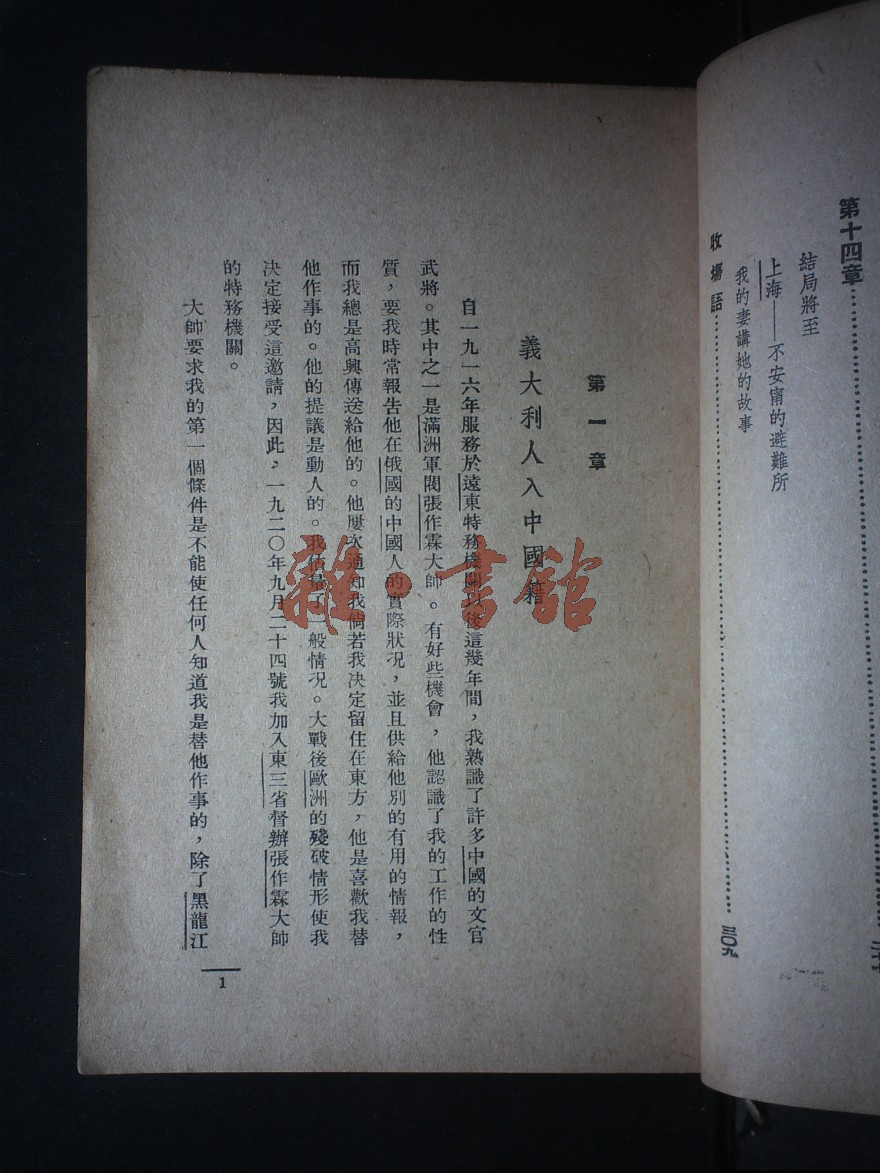 第十四章
結局將至
上海——不安甯的避難所
我的妻講她的故事
收場語
三〇九
第一章
義大利人入中國籍
自一九一六年服務於遠東特務機關以後這幾年間，我熟識了許多中國的文官
武將。其中之一是滿洲軍閥張作霖大帥。有好些機會，他認識了我的工作的性
質，要我時常報告他在俄國的中國人的實際狀况，並且供給他別的有用的情報，
而我總是高興傳送給他的。他屢次通知我倘若我决定留住在東方，他是喜歡我替
他作事的。他的提議是動人的。我估量了一般情况。大戰後歐洲的殘破情形使我
决定接受這邀請，因此，一九二〇年九月二十四號我加入東三省督辦張作霖大帥
的特務機關。
大帥要求我的第一個條件是不能使任何人知道我是替他作事的，除了黑龍江
1
雜·書館